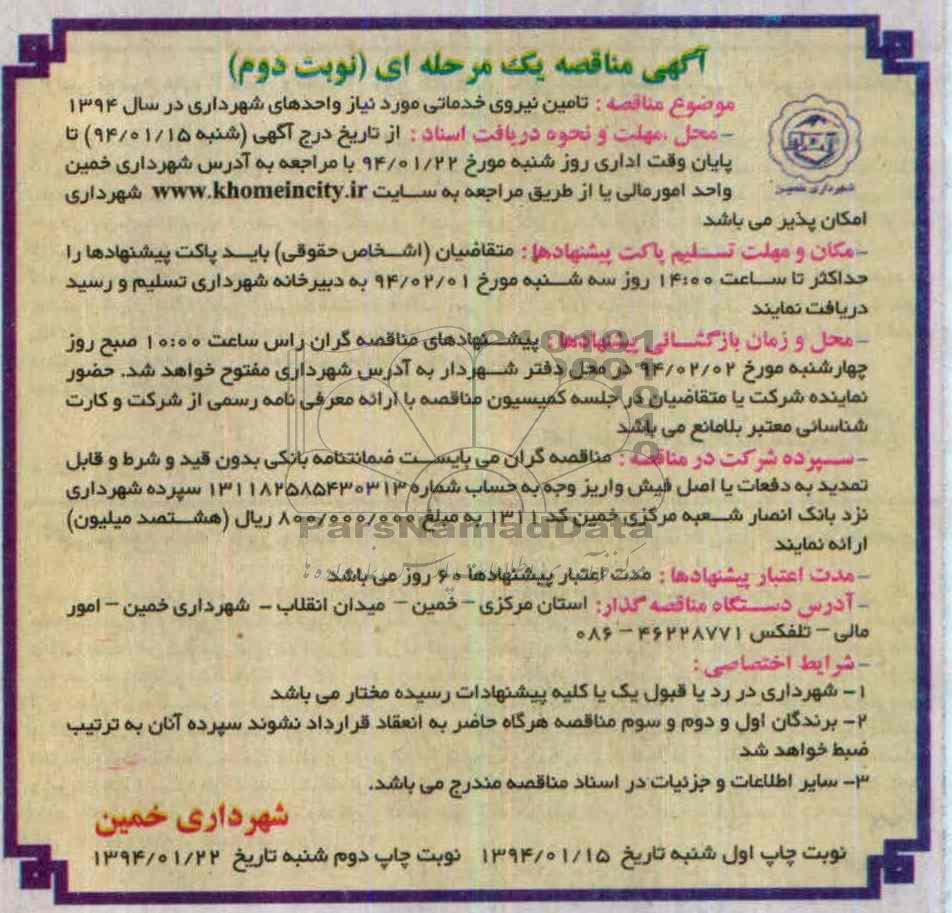 آگهی مناقصه یک مرحله ای (نوبت دوم)
موضوع مناقصه : تامین نیروی خدماتی مورد نیاز واحدهای شهرداری در سال ۱۳۹۴
- محل ،مهلت و نحوه دریافت اسناد : از تاریخ درج آگهی (شنبه ۹۴/۰۱/۱۵) تا
پایان وقت اداری روز شنبه مورخ ۹۴/۰۱/۲۲ با مراجعه به آدرس شهرداری خمین
واحد امورمالی یا از طریق مراجعه به سایت www.khomeincity.ir شهرداری
شهرداری خمین
امکان پذیر می باشد
- مکان و مهلت تسلیم پاکت پیشنهادها : متقاضیان (اشخاص حقوقی) باید پاکت پیشنهادها را
حداکثر تا ساعت ۱۴:۰۰ روز سه شنبه مورخ ۹۴/۰۲/۰۱ به دبیرخانه شهرداری تسلیم و رسید
دریافت نمایند
- محل و زمان بازگشائی پیشنهادها : پیشنهادهای مناقصه گران راس ساعت ۱۰:۰۰ صبح روز
چهارشنبه مورخ ۹۴/۰۲/۰۲ در محل دفتر شهردار به آدرس شهرداری مفتوح خواهد شد. حضور
نماینده شرکت یا متقاضیان در جلسه کمیسیون مناقصه با ارائه معرفی نامه رسمی از شرکت و کارت
شناسائی معتبر بلامانع می باشد
- سپرده شرکت در مناقصه : مناقصه گران می بایست ضمانتنامه بانکی بدون قید و شرط و قابل
تمدید به دفعات یا اصل فیش واریز وجه به حساب شماره ۱۳۱۱۸۲۵۸۵۴۳۰۳۱۳ سپرده شهرداری
نزد بانک انصار شعبه مرکزی خمین کد ۱۳۱۱ به مبلغ ۸۰۰/۰۰۰/۰۰۰ ریال (هشتصد میلیون)
ParsNamadData
ارائه نمایند
- مدت اعتبار پیشنهادها : مدت اعتبار پیشنهادها ۶۰ روز می باشد
- آدرس دستگاه مناقصه گذار: استان مرکزی – خمین – میدان انقلاب - شهرداری خمین – امور
مالی – تلفکس ۴۶۲۲۸۷۷۱ – ۰۸۶
- شرایط اختصاصی :
۱- شهرداری در رد یا قبول یک یا کلیه پیشنهادات رسیده مختار می باشد
۲- برندگان اول و دوم و سوم مناقصه هرگاه حاضر به انعقاد قرارداد نشوند سپرده آنان به ترتیب
ضبط خواهد شد
۳- سایر اطلاعات و جزئیات در اسناد مناقصه مندرج می باشد.
شهرداری خمین
نوبت چاپ اول شنبه تاریخ ۱۳۹۴/۰۱/۱۵ نوبت چاپ دوم شنبه تاریخ ۱۳۹۴/۰۱/۲۲